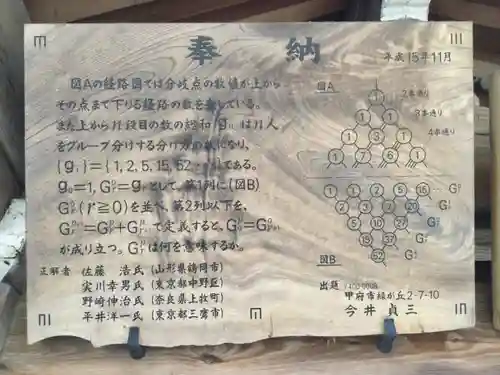 奉納
平成15年11月
図Aの経路図では分岐点の数値が上から
その点まで下りる経路の数を表している。
また上からn段目の数の総和 gₙ は n人
をグループ分けする分け方の数になり、
{gᵢ}={1, 2, 5, 15, 52 …}である。
g₀=1, G⁰ᵣ=gᵣとして、第1列に(図B)
G⁰ᵣ(r≧0)を並べ、第2列以下を、
で定義すると、
が成り立つ。は何を意味するか。
正解者 佐藤 浩氏(山形県鶴岡市)
実川幸男氏(東京都中野区)
野崎伸治氏(奈良県上牧町)
平井洋一氏(東京都三鷹市)
図A
2本通り
3本通り
4本通り
1
1 1
1 3 1
1 7 6 1
1 1 2 5 15
1 3 10
図B
出題
甲府市緑が丘2-7-10
今井貞三